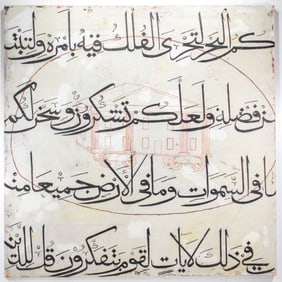 كم البحر لتجرى الفلك فيه بامره ولتبتغ
من فضله ولعلكم تشكرون وسخر لكم
ما فى السموات وما فى الأرض جميعا منه
فى ذلك لايات لقوم يتفكرون قل للذين